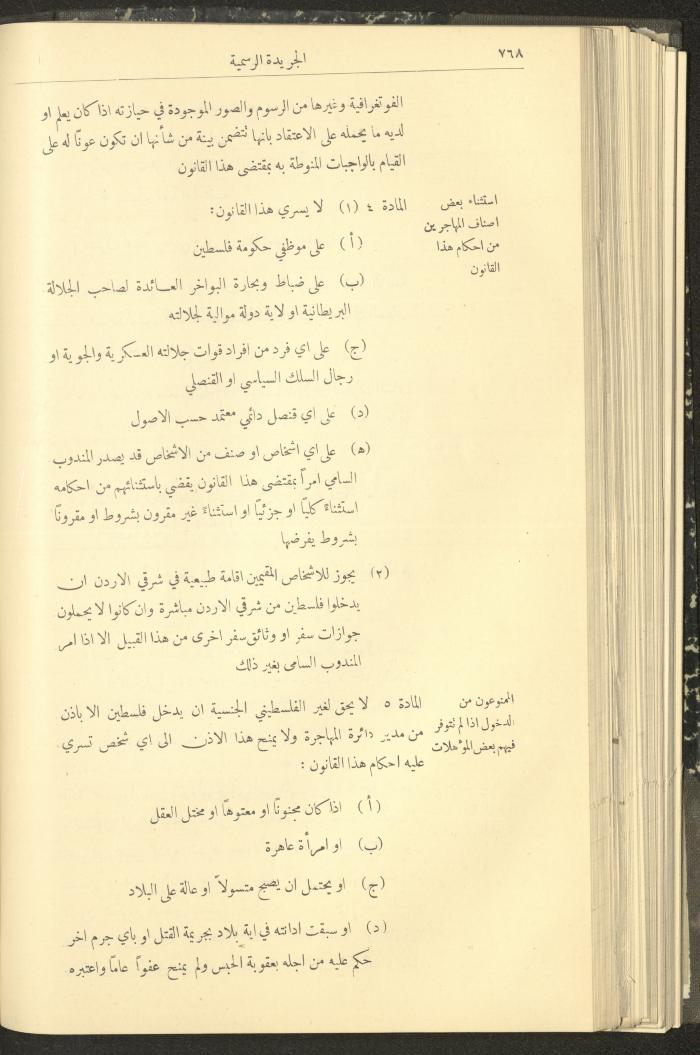 ٧٦٨
الجريدة الرسمية
الفوتغرافية وغيرها من الرسوم والصور الموجودة في حيازته اذا كان يعلم او
لديه ما يحمله على الاعتقاد بانها تتضمن بينة من شأنها ان تكون عونًا له على
القيام بالواجبات المنوطة به بمقتضى هذا القانون
استثناء بعض
اصناف المهاجرين
من احكام هذا
القانون
المادة ٤ (١) لا يسري هذا القانون:
(أ) على موظفي حكومة فلسطين
(ب) على ضباط وبحارة البواخر العائدة لصاحب الجلالة
البريطانية او لاية دولة موالية لجلالته
(ج) على اي فرد من افراد قوات جلالته العسكرية والجوية او
رجال السلك السياسي او القنصلي
(د) على اي قنصل دائمي معتمد حسب الاصول
(ه) على اي اشخاص او صنف من الاشخاص قد يصدر المندوب
السامي امرًا بمقتضى هذا القانون يقضي باستثنائهم من احكامه
استثناءً كليًا او جزئيًا او استثناءً غير مقرون بشروط او مقرونًا
بشروط يفرضها
(٢) يجوز للاشخاص المقيمين اقامة طبيعية في شرقي الاردن ان
يدخلوا فلسطين من شرقي الاردن مباشرة وان كانوا لا يحملون
جوازات سفر او وثائق سفر اخرى من هذا القبيل الا اذا امر
المندوب السامي بغير ذلك
الممنوعون من
الدخول اذا لم تتوفر
فيهم بعض المؤهلات
المادة ٥ لا يحق لغير الفلسطيني الجنسية ان يدخل فلسطين الا باذن
من مدير دائرة المهاجرة ولا يمنح هذا الاذن الى اي شخص تسري
عليه احكام هذا القانون :
(أ) اذا كان مجنونًا او معتوهًا او مختل العقل
(ب) او امرأة عاهرة
(ج) او يحتمل ان يصبح متسولاً او عالة على البلاد
(د) او سبقت ادانته في اية بلاد بجريمة القتل او باي جرم اخر
حكم عليه من اجله بعقوبة الحبس ولم يمنح عفوًا عامًا واعتبره